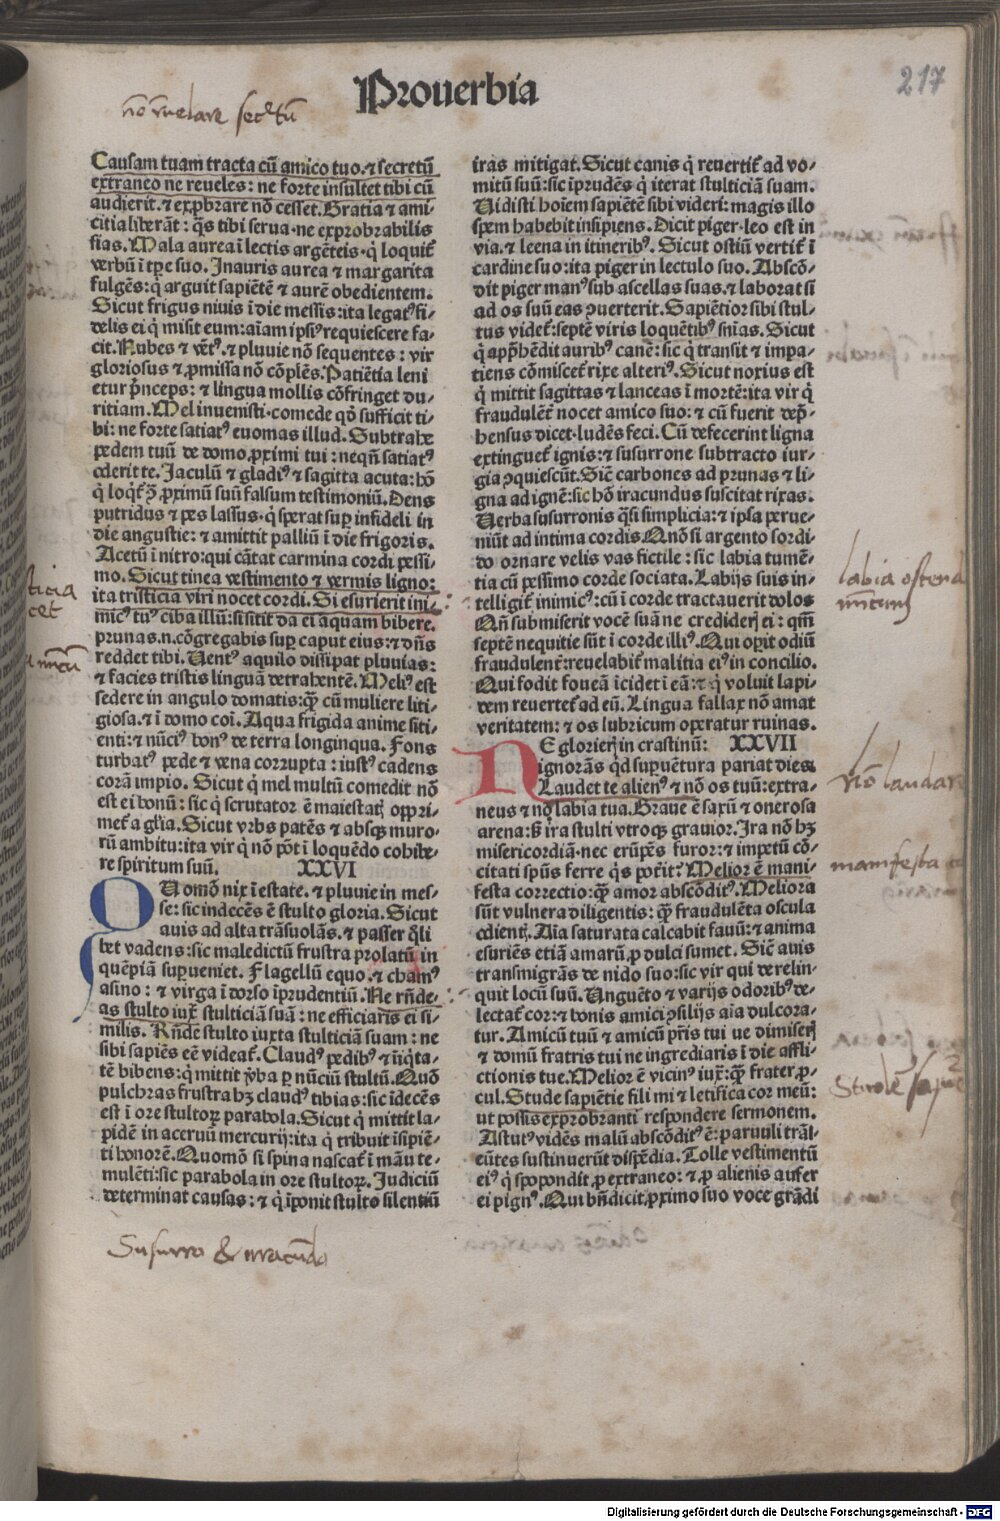 217
Prouerbia
nõ reuelare secretũ
Causam tuam tracta cũ amico tuo.⁊ secretũ
extraneo ne reueles: ne forte insultet tibi cũ
audierit.⁊ exprobrare nõ cesset. Gratia ⁊ ami-
citia liberãt: q̃s tibi serua ne exprobrabilis
fias. Mala aurea ĩ lectis argẽteis q̇ loquit᷑
verbũ ĩ tꝑe suo. Inauris aurea ⁊ margarita
fulgẽs: q̇ arguit sapiẽtẽ ⁊ aurẽ obedientem.
Sicut frigus niuis ĩ die messis: ita legatꝰ fi-
delis ei q̇ misit eum: aĩam ipsiꝰ requiescere fa-
cit. Nubes ⁊ vẽtꝰ.⁊ pluuie nõ sequentes: vir
gloriosus ⁊ ꝓmissa nõ cõplẽs. Patiẽtia leni
etur prĩceps: ⁊ lingua mollis cõfringet du-
ritiam. Mel inuenisti comede qď sufficit ti-
bi: ne forte satiatꝰ euomas illud. Subtrahe
pedem tuũ de domo ꝓximi tui: neqñ satiatꝰ
oderit te. Iaculũ ⁊ gladiꝰ ⁊ sagitta acuta: hõ
q̇ loqt᷑ ꝯ̃ ꝓximũ suũ falsum testimoniũ. Dens
putridus ⁊ pes lassus q̇ sperat suꝑ infideli in
die angustie: ⁊ amittit palliũ ĩ die frigoris.
Acetũ ĩ nitro: qui cãtat carmina cordi pessi-
mo. Sicut tinea vestimento ⁊ vermis ligno:
ita tristicia viri nocet cordi. Si esurierit ini-
micꝰ tuꝰ ciba illũ: si sitit da ei aquam bibere.
prunas.n.cõgregabis suꝑ caput eius: ⁊ dñs
reddet tibi. Uentꝰ aquilo dissipat pluuias:
⁊ facies tristis linguã detrahentẽ. Meliꝰ est
sedere in angulo domatis: q̃ꝫ cũ muliere liti-
giosa.⁊ ĩ domo coĩ. Aqua frigida anime siti-
enti: ⁊ nũciꝰ bonꝰ de terra longinqua. Fons
turbatꝰ pede ⁊ vena corrupta: iustꝰ cadens
corã impio. Sicut q̇ mel multũ comedit nõ
est ei bonũ: sic q̇ scrutator ẽ maiestatꝭ oppri-
met᷑ a gl̃ia. Sicut vrbs patẽs ⁊ absqꝫ muro-
rũ ambitu: ita vir q̇ nõ põt ĩ loquẽdo cohibe-
re spiritum suũ. XXVI
QUomõ nix ĩ estate.⁊ pluuie in mes-
se: sic indecẽs ẽ stulto gloria. Sicut
auis ad alta trãsuolãs.⁊ passer q̃li
bet vadens: sic maledictũ frustra prolatũ in
quẽpiã suꝑueniet. Flagellũ equo.⁊ chamꝰ
asino: ⁊ virga ĩ dorso ĩprudentiũ. Ne rñde-
as stulto iux̃ stulticiã suã: ne efficiaris ei si-
milis. Rñde stulto iuxta stulticiã suam: ne
sibi sapiẽs eẽ videat᷑. Claudꝰ pedibꝰ ⁊ ĩiq̇ta-
tẽ bibens: q̇ mittit ṽba ꝑ nũciũ stultũ. Quõ
pulchras frustra hꝫ claudꝰ tibias: sic ĩdecẽs
est ĩ ore stultoꝝ parabola. Sicut q̇ mittit la-
pidẽ in aceruũ mercurij: ita q̇ tribuit ĩsipiẽ-
ti honorẽ. Quomõ si spina nascat᷑ ĩ mãu te-
mulẽti: sic parabola in ore stultoꝝ. Iudiciũ
determinat causas: ⁊ q̇ ĩponit stulto silentiũ
iras mitigat. Sicut canis q̇ reuertit᷑ ad vo-
mitũ suũ: sic ĩprudẽs q̇ iterat stulticiã suam.
Uidisti hoĩem sapiẽtẽ sibi videri: magis illo
spem habebit insipiens. Dicit piger leo est in
via.⁊ leena in itineribꝰ. Sicut ostiũ vertit᷑ ĩ
cardine suo: ita piger in lectulo suo. Abscõ-
dit piger manꝰ sub ascellas suas.⁊ laborat si
ad os suũ eas ꝯuerterit. Sapiẽtior sibi stul-
tus videt᷑: septẽ viris loquẽtibꝰ sñias. Sicut
q̇ app̃hẽdit auribꝰ canẽ: sic q̇ transit ⁊ impa-
tiens cõmiscet᷑ rixe alteriꝰ. Sicut noxius est
q̇ mittit sagittas ⁊ lanceas ĩ mortẽ: ita vir q̇
fraudulẽt᷑ nocet amico suo: ⁊ cũ fuerit dep̃-
hensus dicet ludẽs feci. Cũ defecerint ligna
extinguet᷑ ignis: ⁊ susurrone subtracto iur-
gia ꝯquiescũt. Sic̃ carbones ad prunas ⁊ li-
gna ad ignẽ: sic hõ iracundus suscitat rixas.
Uerba susurronis q̃si simplicia: ⁊ ipsa perue-
niũt ad intima cordis. Quõ si argento sordi-
do ornare velis vas fictile: sic labia tumẽ-
tia cũ pessimo corde sociata. Labijs suis in-
telligit᷑ inimicꝰ: cũ ĩ corde tractauerit dolos
Qñ submiserit vocẽ suã ne credideris ei: qm̃
septẽ nequitie sũt ĩ corde illiꝰ. Qui operit odiũ
fraudulent᷑: reuelabit᷑ malitia eiꝰ in concilio.
Qui fodit foueã ĩcidet ĩ eã: ⁊ q̇ voluit lapi-
dem reuertet᷑ ad eũ. Lingua fallax nõ amat
veritatem: ⁊ os lubricum operatur ruinas.
NE glorierꝭ in crastinũ: XXVII
ignorãs qď suꝑuẽtura pariat dies.
Laudet te alienꝰ ⁊ nõ os tuũ: extra-
neus ⁊ nõ labia tua. Graue ẽ saxũ ⁊ onerosa
arena: sꝫ ira stulti vtroqꝫ grauior. Ira nõ hꝫ
misericordiã nec erũpẽs furor: ⁊ impetũ cõ-
citati spũs ferre q̇s poterit: Melior ẽ mani-
festa correctio: q̃ꝫ amor abscõditꝰ. Meliora
sũt vulnera diligentis: q̃ꝫ fraudulẽta oscula
odientꝭ. Aĩa saturata calcabit fauũ: ⁊ anima
esuriẽs etiã amarũ ꝓ dulci sumet. Sic̃ auis
transmigrãs de nido suo: sic vir qui derelin-
quit locũ suũ. Unguẽto ⁊ varijs odoribꝰ de-
lectat᷑ cor: ⁊ bonis amici ꝯsilijs aĩa dulcora-
tur. Amicũ tuũ ⁊ amicũ pr̃is tui ne dimiseris
⁊ domũ fratris tui ne ingrediaris ĩ die affli-
ctionis tue. Melior ẽ vicinꝰ iux̃: q̃ꝫ frater ꝓ-
cul. Stude sapiẽtie fili mi ⁊ letifica cor meũ:
ut possis exprobranti respondere sermonem.
Astutꝰ vidẽs malũ abscõditꝰ ẽ: paruuli trãs-
eũtes sustinuerũt dispẽdia. Tolle vestimentũ
eiꝰ q̇ spopondit ꝓ extraneo: ⁊ ꝓ alienis aufer
ei pignꝰ. Qui bñdicit ꝓximo suo voce grãdi
labia ostend
nõ laudar
manifesta
Susurro & iracundo
Digitalisierung gefördert durch die Deutsche Forschungsgemeinschaft - DFG